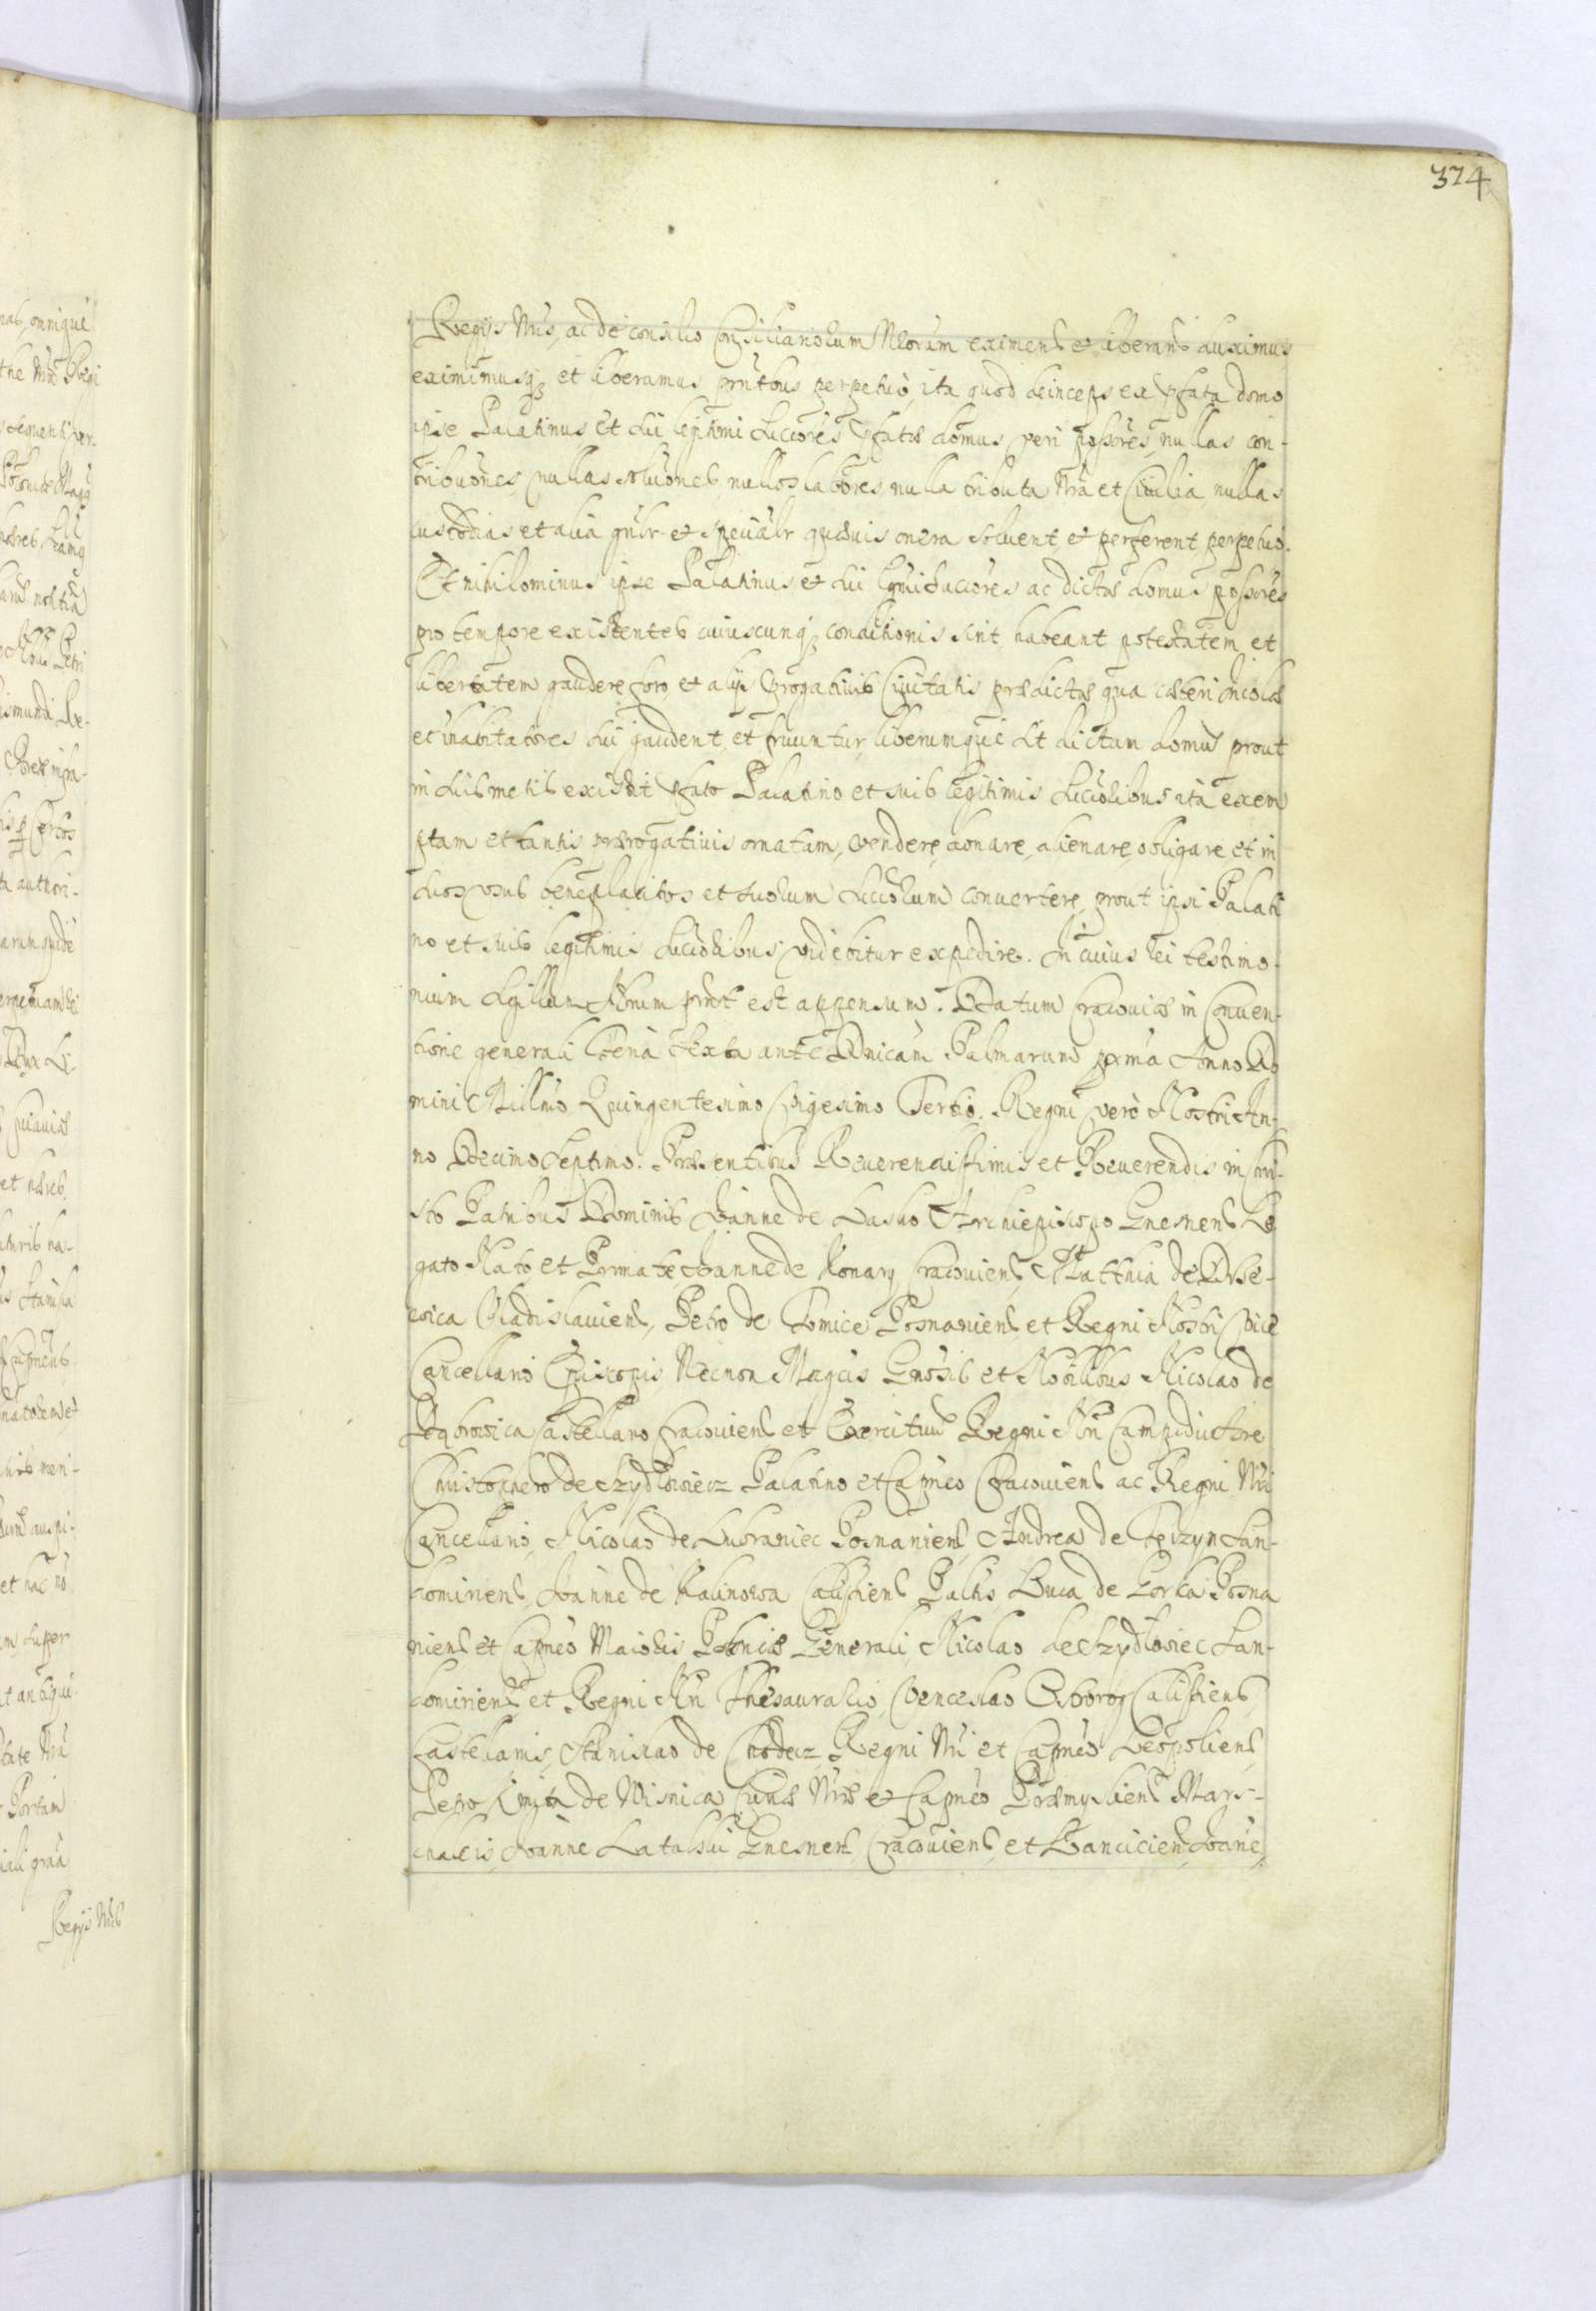 374
Regijs Nris, ac de consilio Consiliariorum Nrorum eximend et liberand duximus
eximimusq; et liberamus pntibus perpetuò, ita quod deinceps ex pfata domo
ipse Palatinus et sui legitimi succores pfatæ domus veri possores, nullas con-
tribuones, nullas soluones, nullos labores, nulla tributa Nra et Ciuilia, nullas
custodias et alia gnlr et specialr quæuis onera soluent, et perferent perpetuò.
Et nihilominus ipse Palatinus et sui lgmi succores ac dictæ domus possores
pro tempore existentes cuiuscunq; conditionis sint, habeant potestatem et
libertatem gaudere foro, et alijs prrogatiuis Ciuitatis prædictæ, qua cæteri incolæ
et inhabitatores sui gaudent, et fruuntur, liberumque sit dictam domũ, prout
in suis metis existit pfato Palatino et suis legitimis succõribus ita exem
ptam et tantis prærogatiuis ornatam, vendere, donare, alienare, obligare et in
suos vsus beneplacitos et suorum succõrum conuertere, prout ipsi Palati
no et suis legitimis succõribus videbitur expedire. In cuius rei testimo-
nium Sigillum Nrum pnt est appensum. Datum Cracouiæ in Conuen-
tione generali feria sexta ante Dnicam Palmarum pxma Anno Do
mini Millmo Quingentesimo Vigesimo Tertio. Regni verò Nostri An-
no Decimo Septimo. Præsentibus Reuerendissimis et Reuerendis in Chri-
sto Patribus Dominis Joanne de Lasko Archiepiscopo Gnesnens Le
gato Nato et Primate, Joanne de Konary Cracouiens, Matthia de Drze-
wica Vladislauiens, Petro de Tomice Posnaniens et Regni Nostri Vice
Cancellario Episcopis. Necnon Magcis Gnosis et Nobilibus Nicolao de
Dąbrowica Castellano Cracouiens et Exercituũ Regni Nri Campiductore
Christophero de Szydłowiecz Palatino et Capneo Cracouiens ac Regni Nri
Cancellario, Nicolao de Lubraniec Posnaniens, Andrea de Tęczyn San-
domiriens, Joanne de Kalinowa Calissiens Paltis, Luca de Gorka Posna
niens et Capneo Maioris Poloniæ Generali, Nicolao de Szydłowiec San-
domiriens et Regni Nri Thesaurario, Venceslao Ostrorog Calissiens
Castellanis, Stanislao de Chodecz Regni Nri et Capneo Leopoliens,
Petro Kmyta de Wisnica Curiæ Nræ et Capneo Præmysliens Mars-
chalcis, Joanne Latalski Gnesnens, Cracouiens, et Lanciciens, Joanne
Regijs Nris